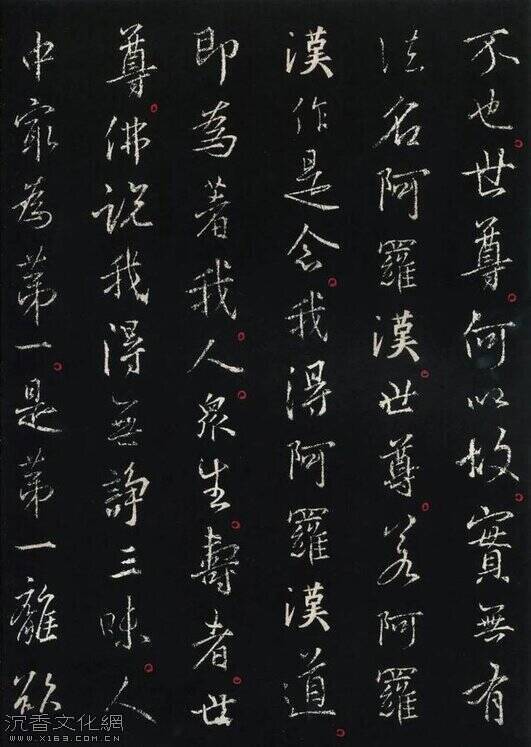 不也世尊何以故實無有
法名阿羅漢世尊若阿羅
漢作是念我得阿羅漢道
即為著我人眾生壽者世
尊佛說我得無諍三昧人
中最為第一是第一離欲
沉香文化網
WWW.X169.COM.CN